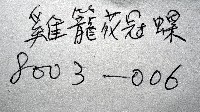 雞籠花冠蝶
8003-006